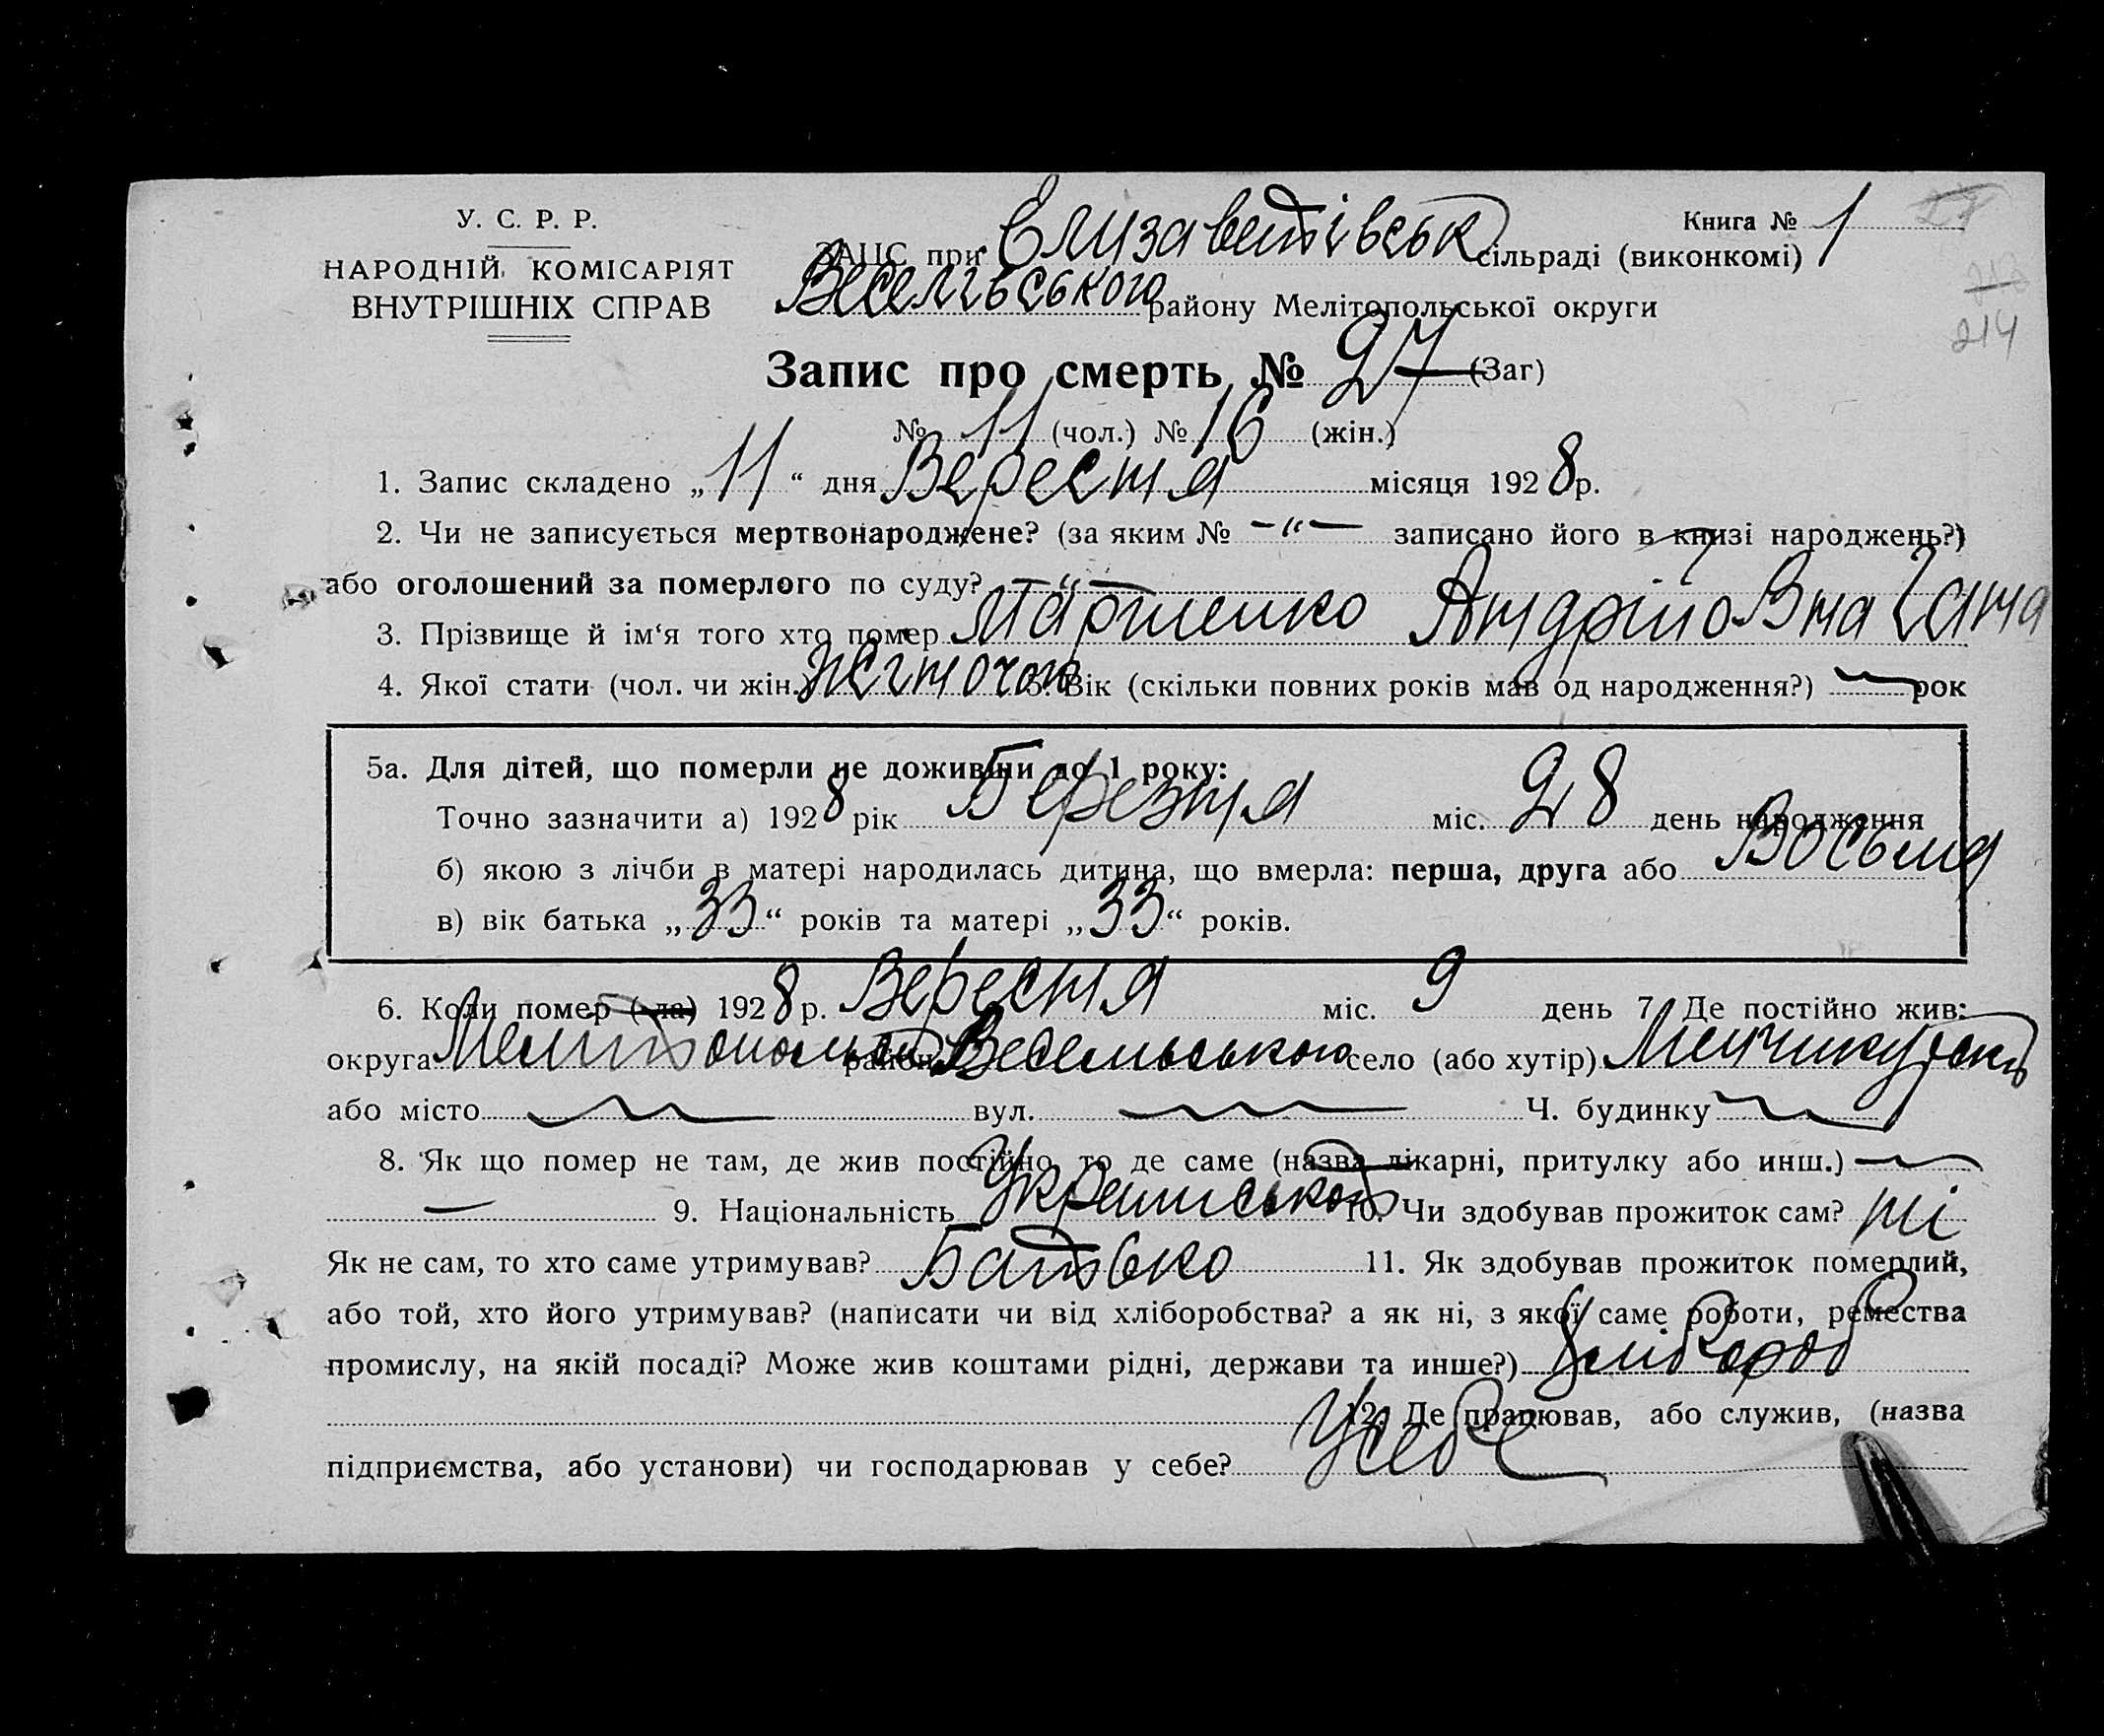 У. С. Р. Р.
НАРОДНІЙ КОМІСАРІЯТ
ВНУТРІШНІХ СПРАВ
Книга № 1 27
ЗАГС при Єлизаветівськ сільраді (виконкомі)
Весельського району Мелітопольської округи
214
Запис про смерть № 27 (Заг)
№ 11 (чол.) № 16 (жін.)
1. Запис складено „ 11 “ дня Вересня місяця 1928 р.
2. Чи не записується мертвонароджене? (за яким № –"– записано його в книзі народжень?)
або оголошений за померлого по суду? –"–
3. Прізвище й ім‘я того хто помер Марченко Андріôвна
4. Якої стати (чол. чи жін.) жіночої 5. Вік (скільки повних років мав од народження?) рок
5а. Для дітей, що померли не доживши до 1 року:
Точно зазначити а) 1928 рік Березня міс. 28 день народження
б) якою з лічби в матері народилась дитина, що вмерла: перша, друга або Восьма
в) вік батька „33“ років та матері „33“ років.
6. Коли помер (-ла) 1928 р. Вересня міс. 9 день 7. Де постійно жив:
округа район Весельського село (або хутір)
або місто вул. Ч. будинку
8. Як що помер не там, де жив постійно, то де саме (назва лікарні, притулку або инш.) —
— 9. Національність 10. Чи здобував прожиток сам? ні
Як не сам, то хто саме утримував? Батько 11. Як здобував прожиток померлий,
або той, хто його утримував? (написати чи від хліборобства? а як ні, з якої саме роботи, ремества
промислу, на якій посаді? Може жив коштами рідні, держави та инше?) Хлібороб
12. Де працював, або служив, (назва
підприємства, або установи) чи господарював у себе? У себе